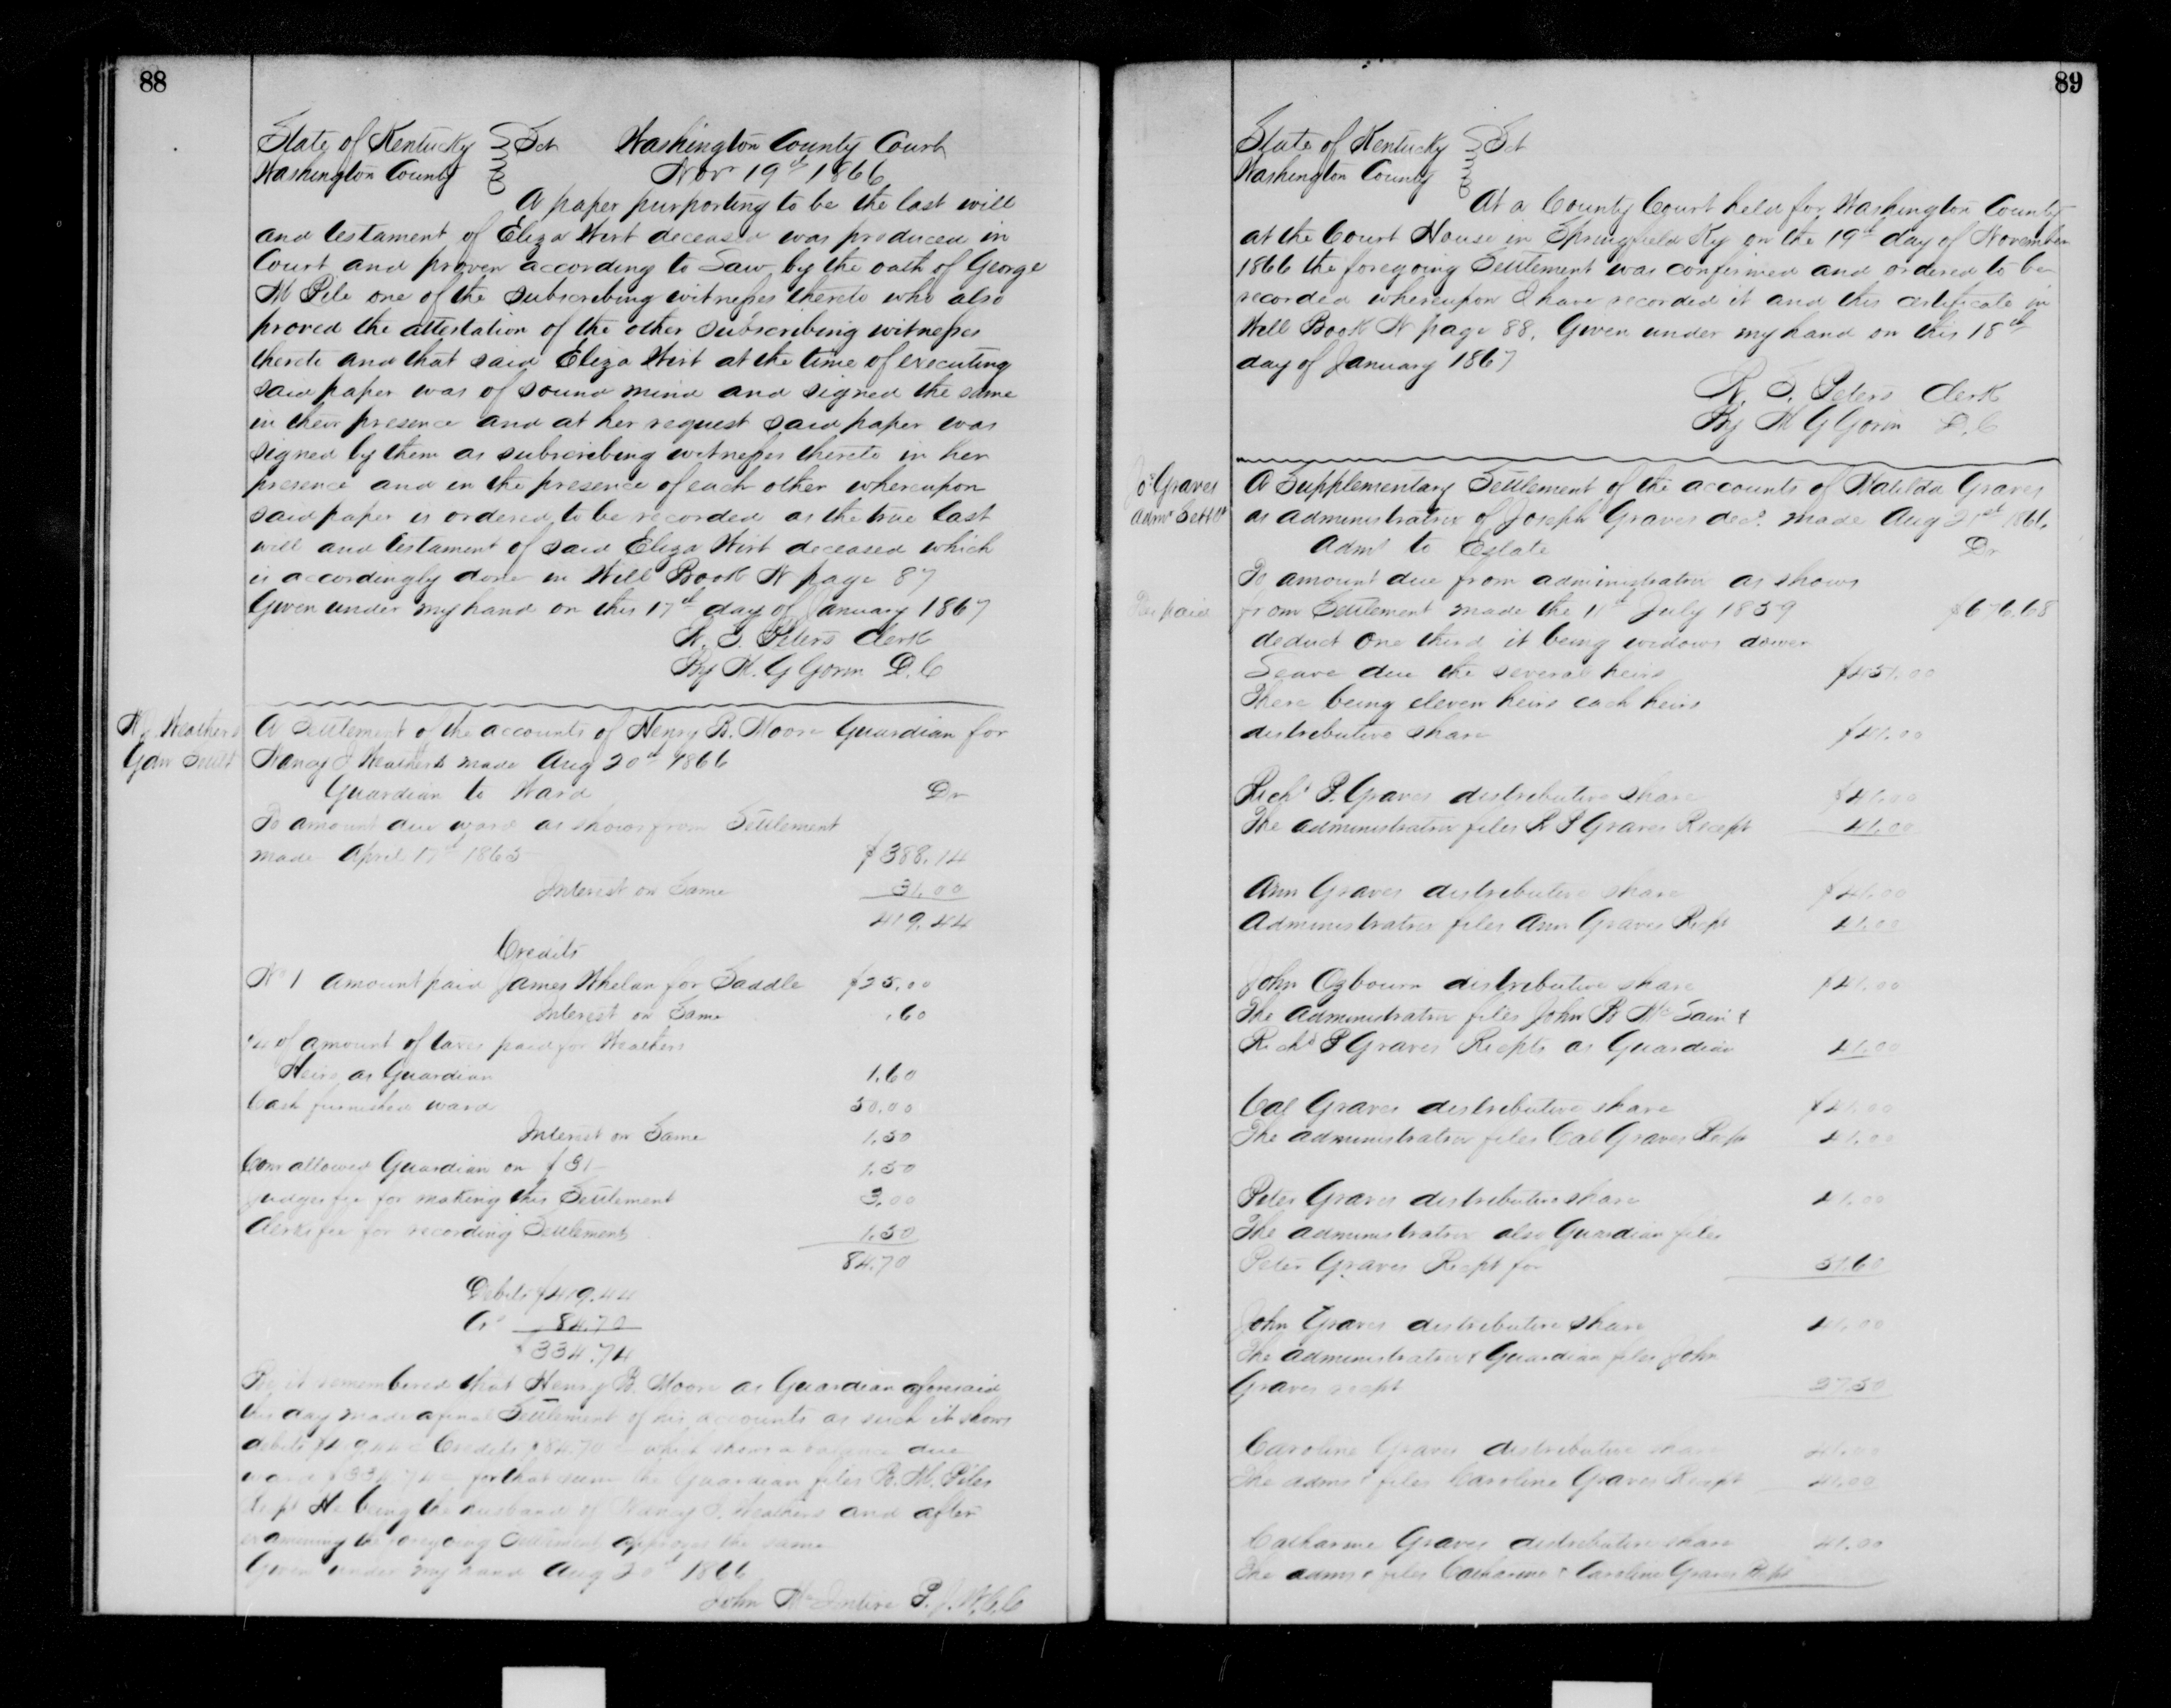 88
State of Kentucky Sct Washington County Court
Washington County Nov 19th 1866
A paper purporting to be the last will
and testament of Eliza Wirt deceased was produced in
Court and proven according to Law by the oath of George
M Pile one of the subscribing witnesses thereto who also
proved the attestation of the other subscribing witnesses
thereto and that said Eliza Wirt at the time of executing
said paper was of sound mind and signed the same
in their presence and at her request said paper was
signed by them as subscribing witnesses thereto in her
presence and in the presence of each other whereupon
said paper is ordered to be recorded as the true last
will and testament of said Eliza Wirt deceased which
is accordingly done in Will Book N page 87
Given under my hand on this 17th day of January 1867
W. S. Peters Clerk
By W. G Gorin D.C
N. J. Weathers
Gdn Settt
A Settlement of the accounts of Henry B. Moore Guardian for
Nancy J Weathers made Aug 20th 1866
Guardian to Ward Dr
To amount due ward as shows from Settlement
made April 17th 1865 $388.14
Interest on Same 31.00
419.44
Credits
No 1 amount paid James Whelan for Saddle $25.00
Interest on Same .60
1/4 of amount of taxes paid for Weathers
Heirs as Guardian 1.60
Cash furnished ward 50.00
Interest on Same 1.50
Com allowed Guardian on $31- 1.50
Judges fee for making this Settlement 3.00
Clerks fee for recording Settlement 1.50
84.70
Debits $419.44
Crs 84.70
$334.74
Be it remembered that Henry B. Moore as Guardian aforesaid
this day made a final Settlement of his accounts as such it shows
debits $419.44 & Credits $84.70 which shows a balance due
ward $334.74 & for that sum the Guardian files B. M. Piles
Rcpt He being the husband of Nancy J. Weathers and after
examining the foregoing Settlement approves the same
Given under my hand Aug 20th 1866
John McIntire P.J.W.C.C
89
State of Kentucky Sct
Washington County
At a County Court held for Washington County
at the Court House in Springfield Ky on the 19th day of November
1866 the foregoing Settlement was confirmed and ordered to be
recorded whereupon I have recorded it and this certificate in
Will Book N page 88. Given under my hand on this 18th
day of January 1867
W. S. Peters Clerk
By W G Gorin D.C
Jos Graves
Admr Settt
A Supplementary Settlement of the accounts of Matilda Graves
as administratrix of Joseph Graves decd. made Aug 21st 1866.
Admx to Estate Dr
To amount due from administratrix as shows
from Settlement made the 11th July 1859 $676.68
deduct one third it being widows dower
Leave due the several heirs $451.00
There being eleven heirs each heirs
distributive share $41.00
Richd P. Graves distributive share $41.00
The administratrix files R P Graves Recept 41.00
Ann Graves distributive share $41.00
Administratrix files Ann Graves Rcpt 41.00
John Ogbourn distributive share $41.00
The Administratrix files John R McSain &
Richd P Graves Recpts as Guardian 41.00
Cal Graves distributive share $41.00
The administratrix files Cal Graves Rcpt 41.00
Peter Graves distributive share 41.00
The administratrix also Guardian files
Peter Graves Recpt for 51.60
John Graves distributive share 41.00
The administratrix & Guardian files John
Graves recpt 37.50
Caroline Graves distributive share 41.00
The admx files Caroline Graves Recpt 41.00
Catharine Graves distributive share 41.00
The admx files Catharine & Caroline Graves Rcpt